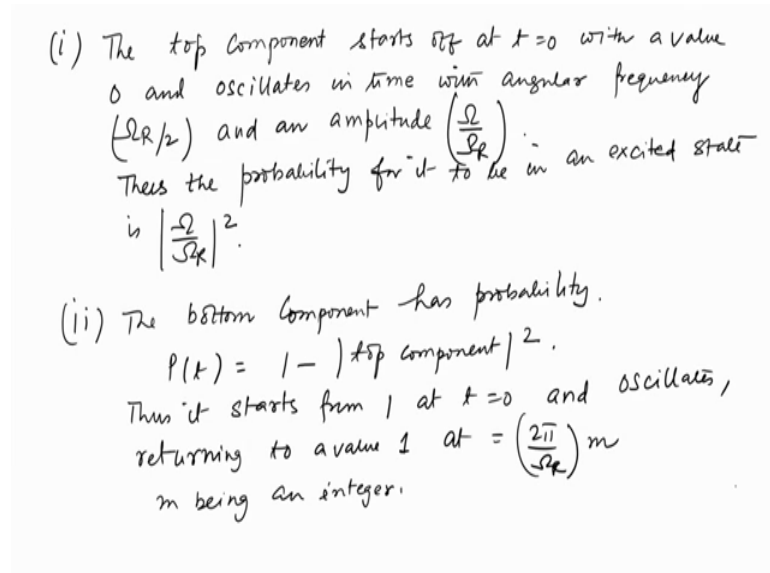 (i) The top component starts off at t=0 with a value
0 and oscillates in time with angular frequency
(Ω_R/2) and an amplitude (Ω/Ω_R).
Thus the probability for it to be in an excited state
is |Ω/Ω_R|².
(ii) The bottom component has probability.
P(t) = 1 - |top component|².
Thus it starts from 1 at t=0 and oscillates,
returning to a value 1 at = (2π/Ω_R) m
m being an integer.